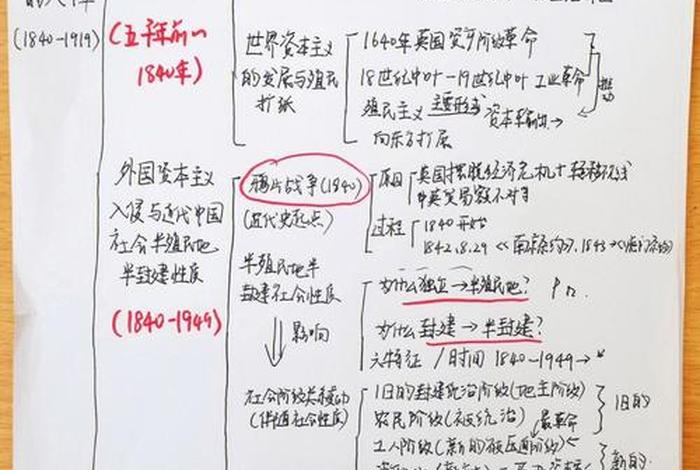 (1840-1919)
(五千年前一
1840年)
世界资本主义
的发展与殖民
扩张
1640年英国资产阶级革命
18世纪中叶一19世纪中叶 工业革命
殖民主义 主要形式 资本输出→
向东方扩展
推动
外国资本主义
入侵与近代中国
社会半殖民地
半封建性质
(1840-1949)
鸦片战争(1840)
(近代史起点)
原因
英国摆脱经济危机+转移不法
中英贸易额不对等
过程
1840开始
1842.8.29《南京条约》. 1843→《虎门条约》
半殖民地半
封建社会性质
影响
为什么独立→半殖民地?
为什么封建→半封建?
六特征 / 时间 1840-1949→
社会阶级关系变动
(伴随社会性质)
旧的封建统治阶级(地主阶级)
农民阶级(被统治)
旧的
最革命
工人阶级(新的被压迫阶级)
新的